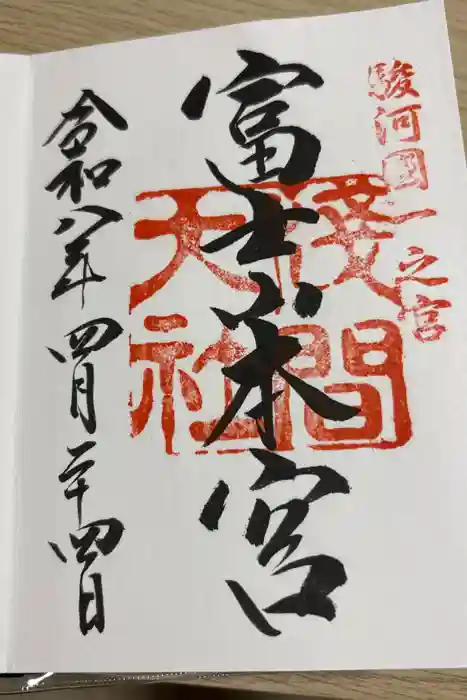 駿河國一之宮
富士山本宮
淺間
大社
令和八年四月二十四日